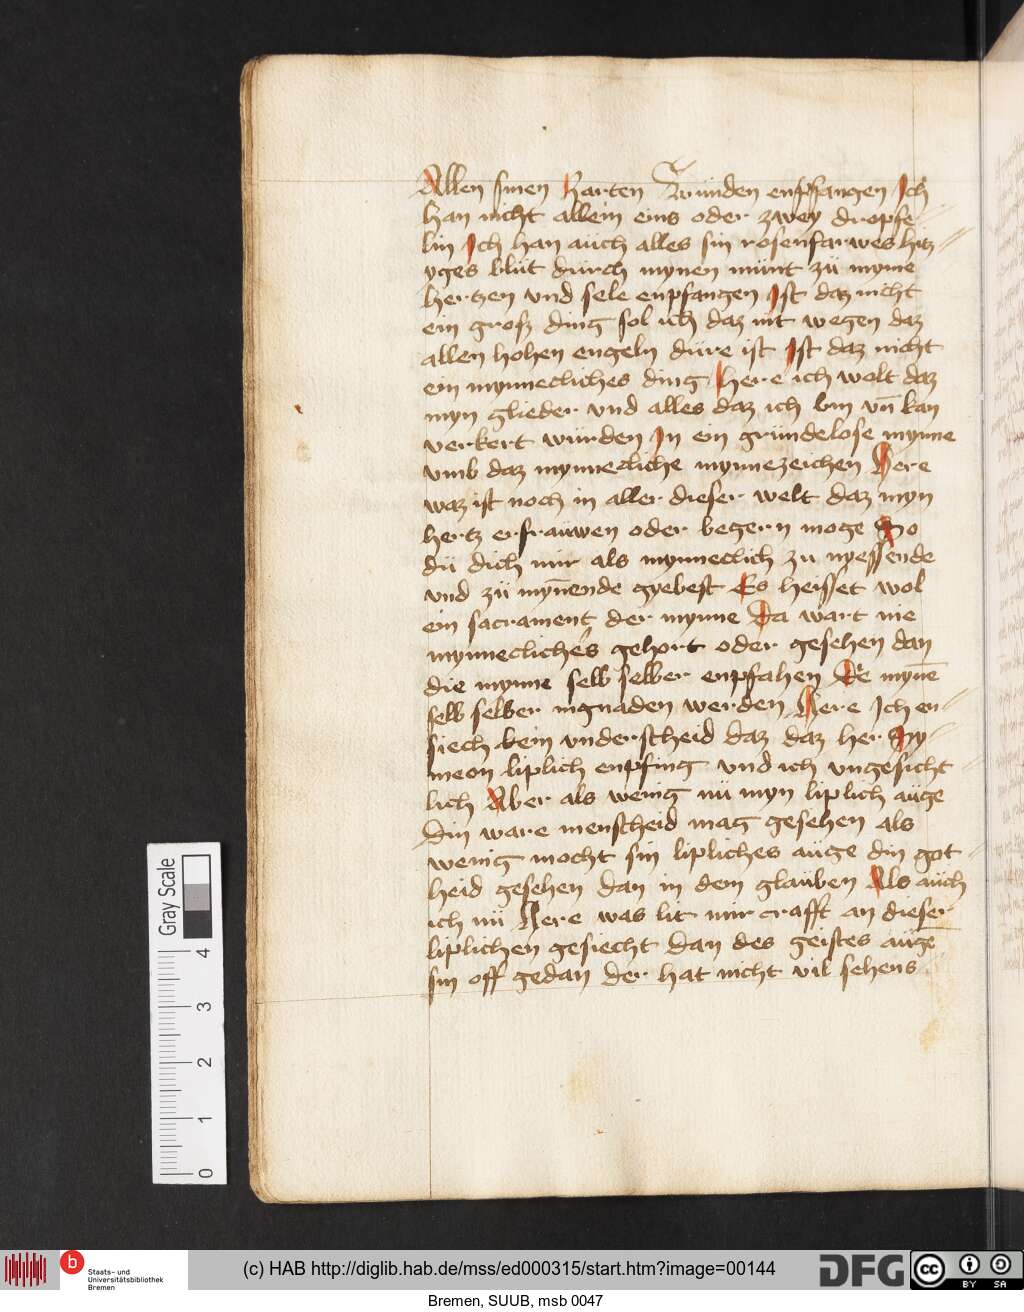 Allen sinen harten Wunden enpfangen Ich
han nicht allein eins oder zwey dropfe-
lin Ich han auch alles sin rosenfarwes hitz-
yges blüt dürch mynen münt zü myme
hertzen vnd sele enpfangen Ist daz nicht
ein grosz ding sol ich daz nit wegen daz
allen hohen engeln düre ist Ist daz nicht
ein mynnecliches ding Here ich wolt daz
myn glieder vnd alles daz ich bin vn̄ kan
verkert würden In ein gründelose mynne
vmb daz mynnecliche mynnezeichen Here
waz ist noch in aller dieser welt daz myn
hertz erfrauwen oder begern moge So
dü dich mir als mynneclich zu nyessende
vnd zü myn̄ende gyebest Es heisset wol
ein sacrament der mynne Da wart nie
mynneclichers gehort oder gesehen dan
die mynne selb selber enpfahen De myn̄e
selb selber ingnaden werden Here Ich en-
siech kein vnderscheid daz daz her Sy-
meon liplich enpfing vnd ich vngesicht-
lich Aber als wenig nü myn liplich aüge
din ware menscheid mag gesehen als
wenig mocht sin lipliches aüge din got-
heid gesehen dan in dem glaüben Als aüch
ich nü Here was lit mir crafft an dieser
liplichen gesiecht dan des geistes aüge
sin off gedan der hat nicht vil sehens
Gray Scale
4
3
2
1
0
b
Staats- und
Universitätsbibliothek
Bremen
(c) HAB http://diglib.hab.de/mss/ed000315/start.htm?image=00144
DFG
cc
BY SA
Bremen, SUUB, msb 0047